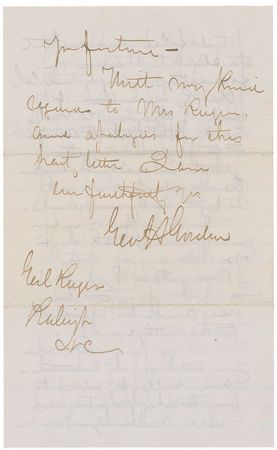 In future —
With my kind
regards to Mrs Ruger,
and apologies for this
hasty letter I am
faithfully yrs
Geo H Gordon
Genl Ruger
Raleigh
N C